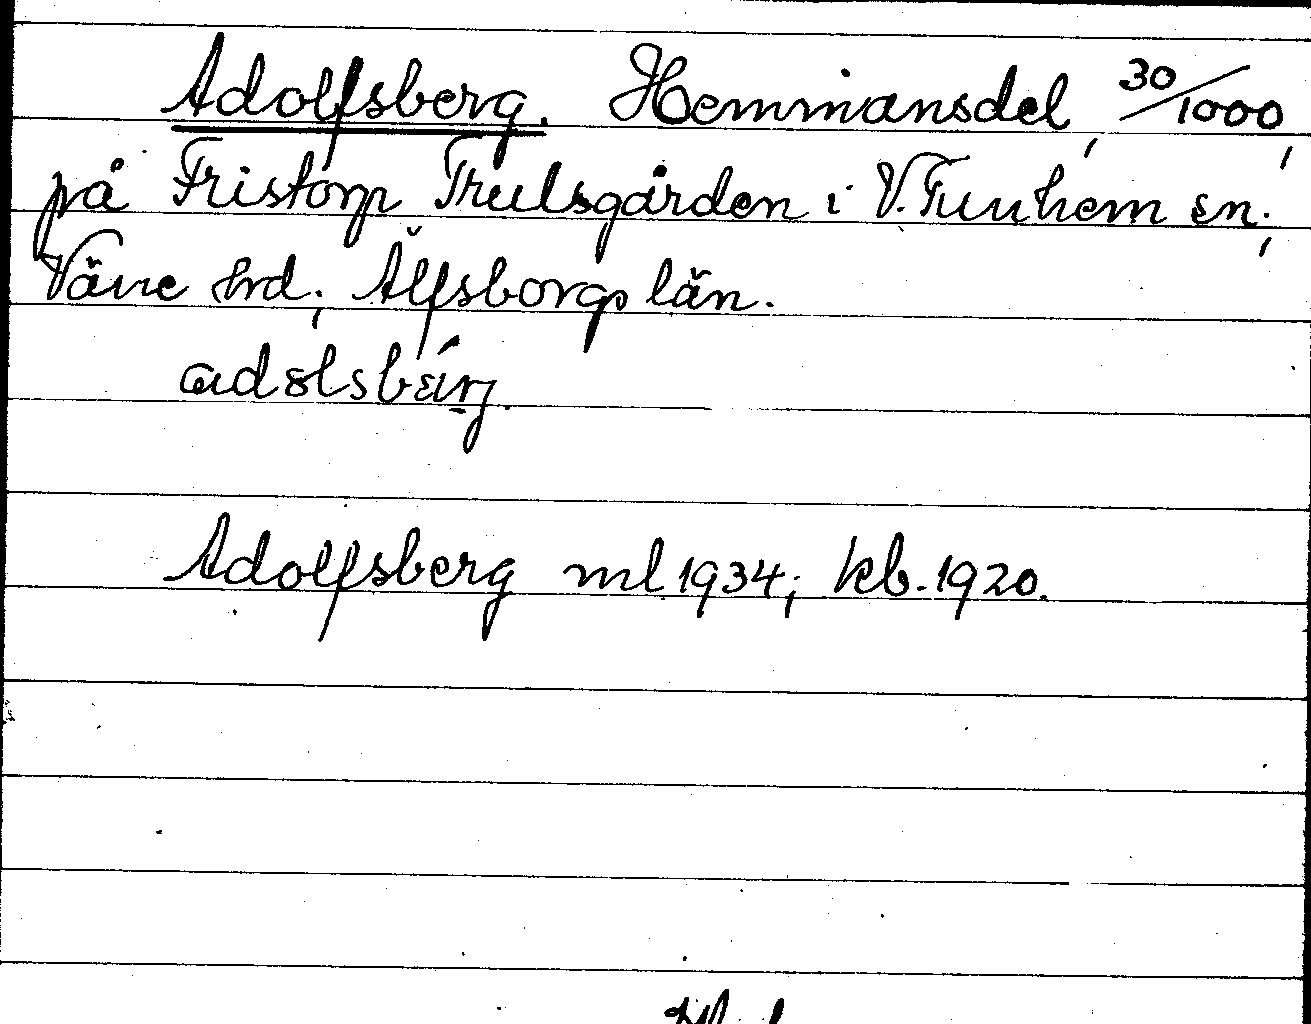 Adolfsberg. Hemmansdel, 30/1000,
på Fristorp Trulsgården i V. Tunhem sn;
Väne hrd; Älfsborgs län.
Adolfsberg ml 1934; kb. 1920.